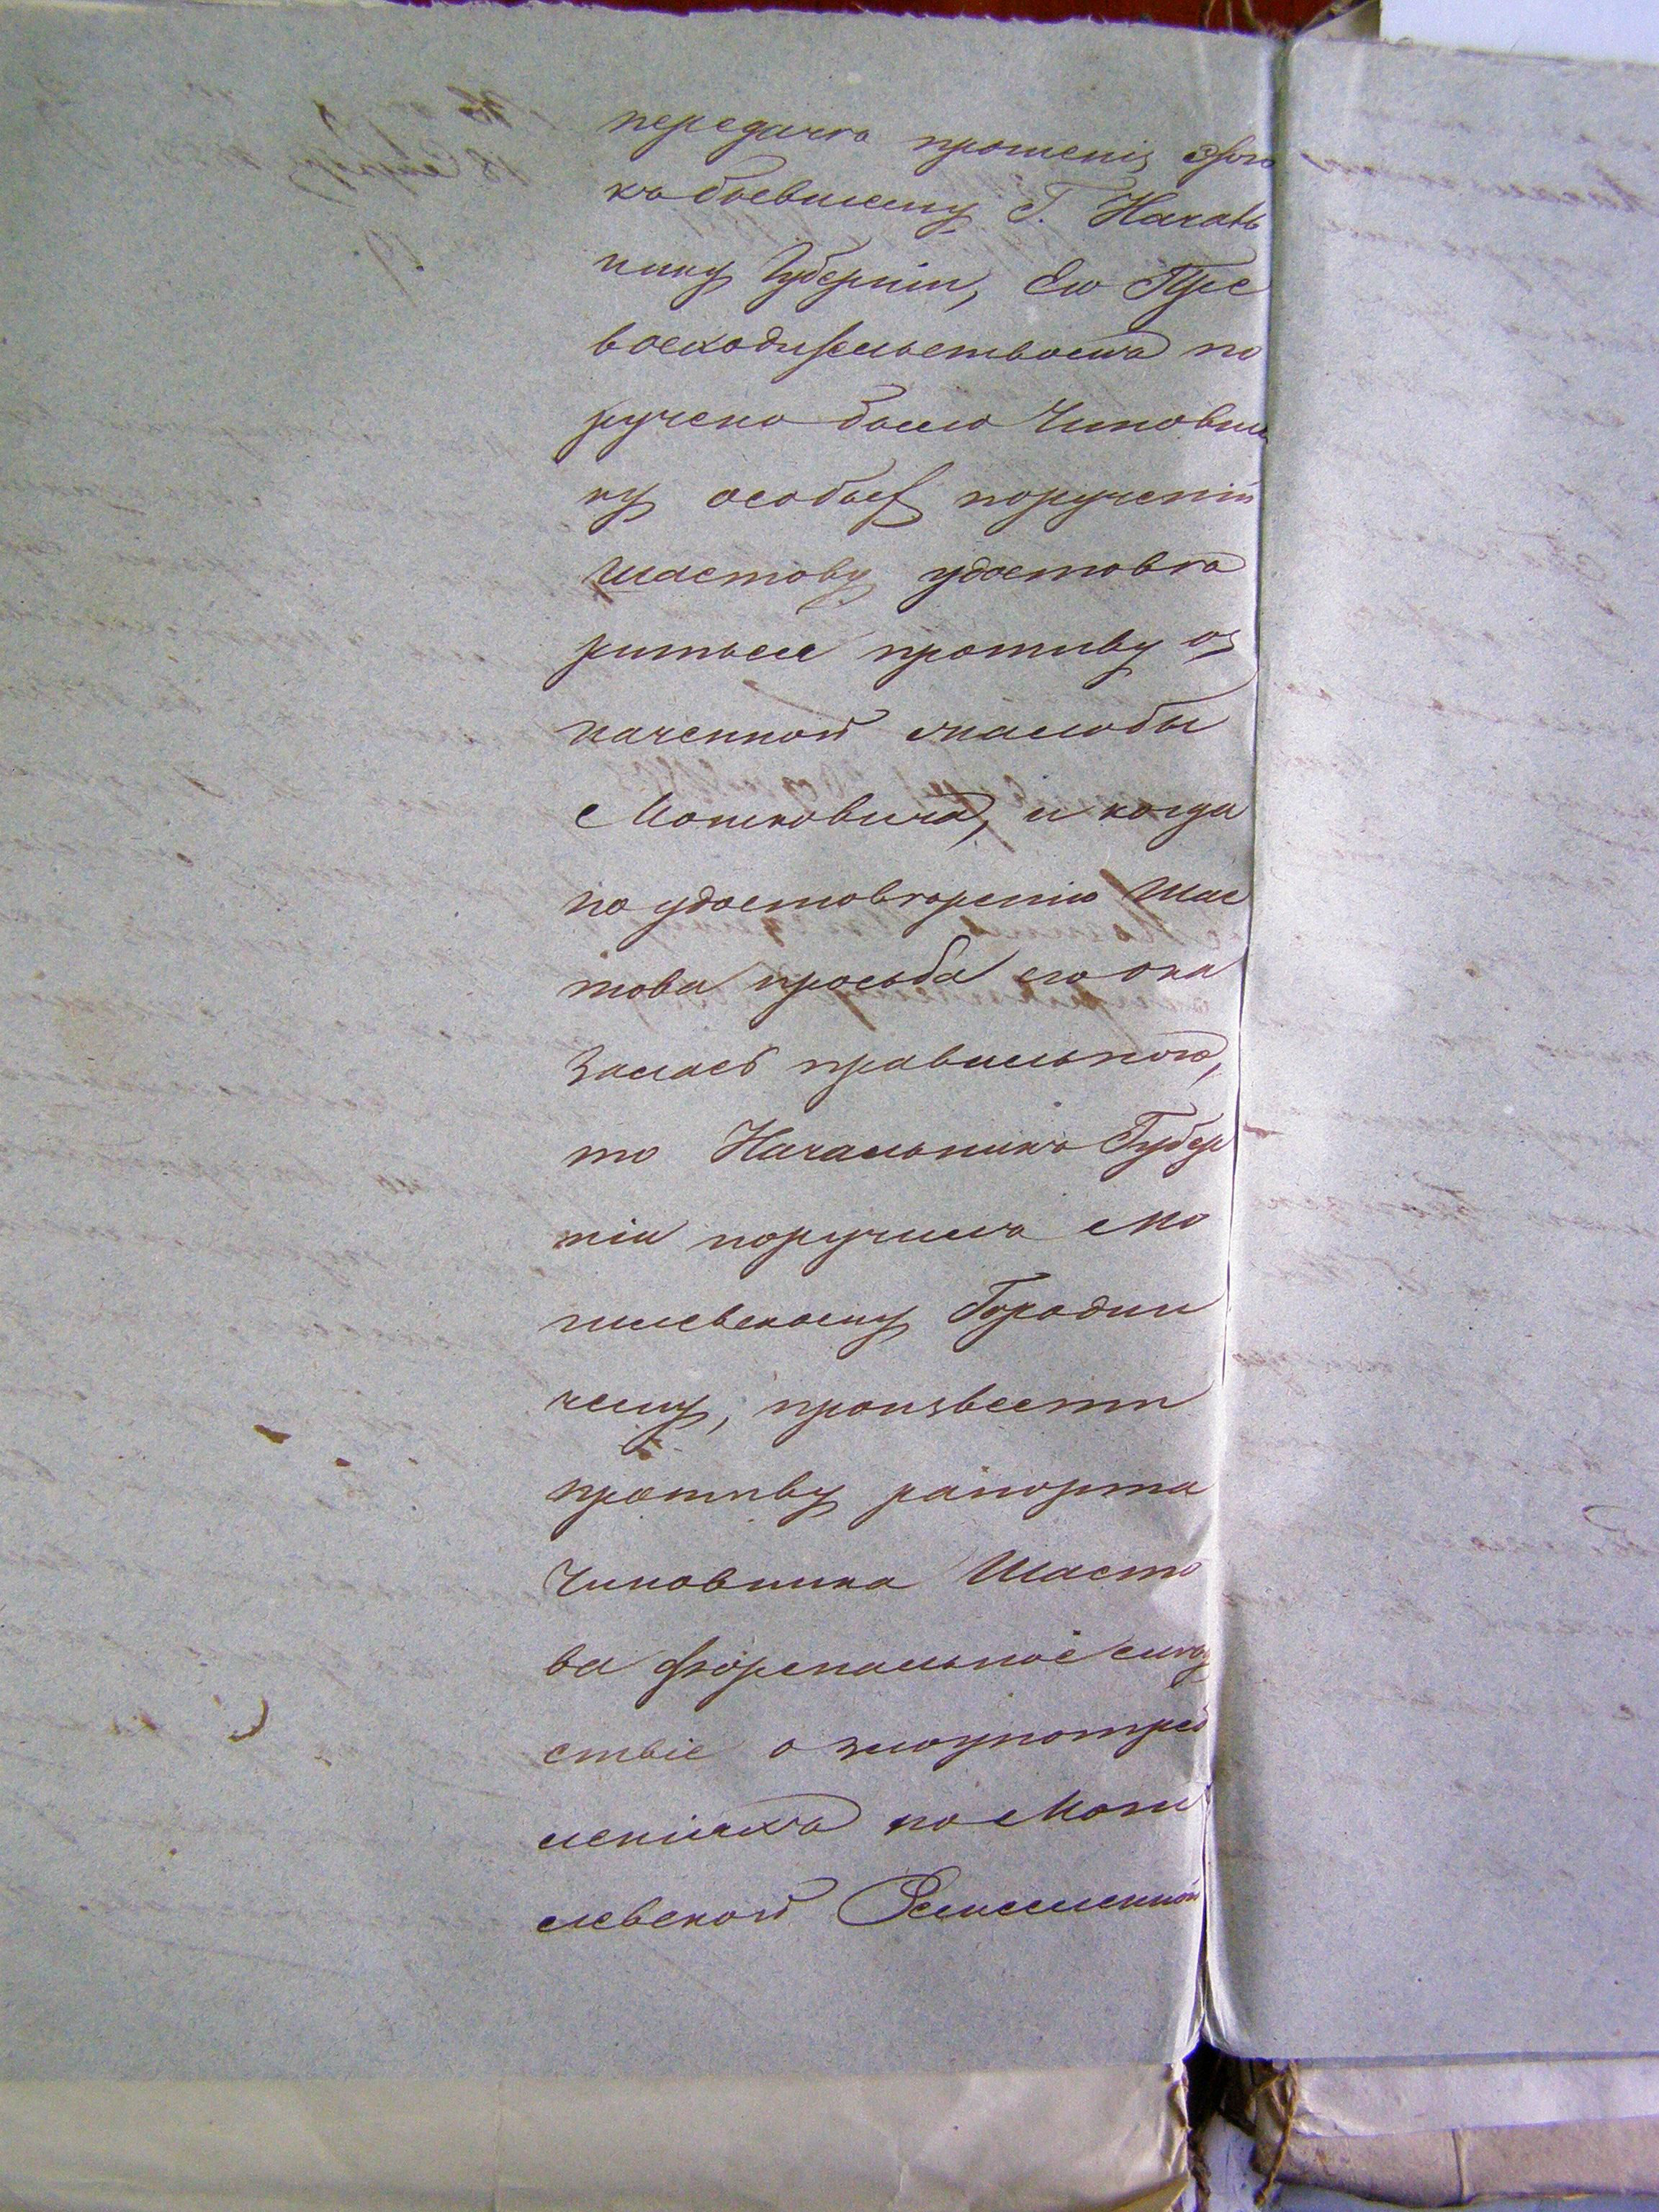 передачѣ прошенія этого
къ бывшему Г. Началь
нику Губерніи, Его Пре
восходительствомъ по
ручено было Чиновни
ку особых порученій
Шастову удостовѣ
риться противу оз
наченной жалобы
Мошковича, и когда
по удостовѣренію Шас
това просьба его ока
залась правильною,
то Начальникъ Губер
ніи поручилъ Мо
гилевскому Городни
чему, произвести
противу рапорта
Чиновника Шасто
ва формальное слѣд
ствіе о злоупотреб
леніяхъ по Моги
левской Ремесленной